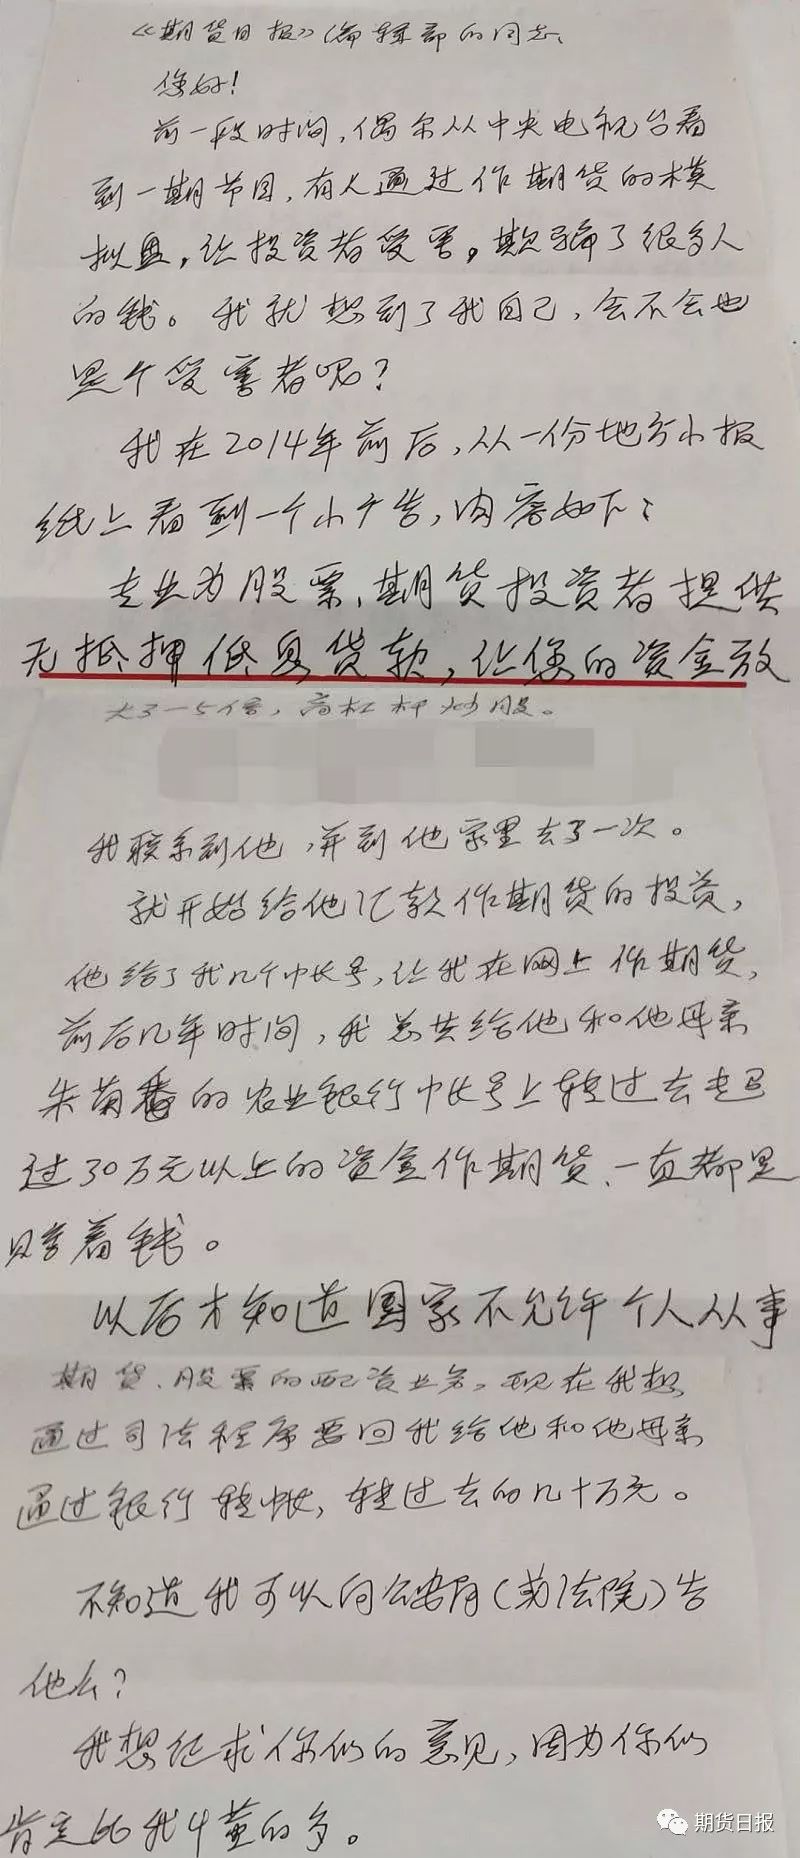 《期货日报》编辑部的同志：
您好！
前一段时间，偶尔从中央电视台看
到一期节目，有人通过作期货的模
拟盘，让投资者受害，欺骗了很多人
的钱。我就想到了我自己，会不会也
是个受害者呢？
我在2014年前后，从一份地方小报
纸上看到一个小广告，内容如下：
专业为股票、期货投资者提供
无抵押低息贷款，让您的资金放
大3一5倍，高杠杆炒股。
我联系到他，并到他家里去了一次。
就开始给他汇款作期货的投资，
他给了我几个帐号，让我在网上作期货，
前后几年时间，我总共给他和他母亲
朱菊香的农业银行帐号上转过去超
过30万元以上的资金作期货、一直都是
赔着钱。
以后才知道国家不允许个人从事
期货、股票的配资业务，现在我想
通过司法程序要回我给他和他母亲
通过银行转帐，转过去的几十万元。
不知道我可以向公安局（或法院）告
他么？
我想征求你们的意见，因为你们
肯定比我懂的多。
期货日报